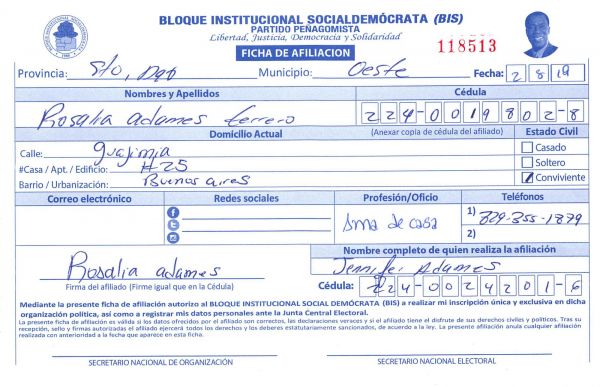 BLOQUE INSTITUCIONAL SOCIALDEMÓCRATA (BIS)
PARTIDO PEÑAGOMISTA
Libertad, Justicia, Democracia y Solidaridad
FICHA DE AFILIACION
118513
Provincia: Sto, Dgo Municipio: Oeste Fecha: 2 8 19
Nombres y Apellidos Cédula
Rosalia adames ferrero 224-0019802-8
Domicilio Actual (Anexar copia de cédula del afiliado) Estado Civil
Calle: guajimia Casado
#Casa / Apt. / Edificio: #25 Soltero
Barrio / Urbanización: Buenos aires Conviviente
Correo electrónico Redes sociales Profesión/Oficio Teléfonos
Ama de casa 1) 829-355-1879
2)
Nombre completo de quien realiza la afiliación
Rosalia adames Jennifer Adames
Firma del afiliado (Firme igual que en la Cédula) Cédula: 224-0024201-6
Mediante la presente ficha de afiliación autorizo al BLOQUE INSTITUCIONAL SOCIAL DEMÓCRATA (BIS) a realizar mi inscripción única y exclusiva en dicha
organización política, así como a registrar mis datos personales ante la Junta Central Electoral.
La presente ficha de afiliación es válida si los datos ofrecidos por el afiliado son correctos, las declaraciones veraces y si el afiliado tiene el disfrute de sus derechos civiles y políticos. Tras su
recepción, sello y firmas autorizadas el afiliado ejercerá todos los derechos y los deberes estatutariamente sancionados, de acuerdo a la ley. La presente afiliación anula cualquier afiliación
realizada con anterioridad a la fecha que aparece en esta ficha.
SECRETARIO NACIONAL DE ORGANIZACIÓN SECRETARIO NACIONAL ELECTORAL